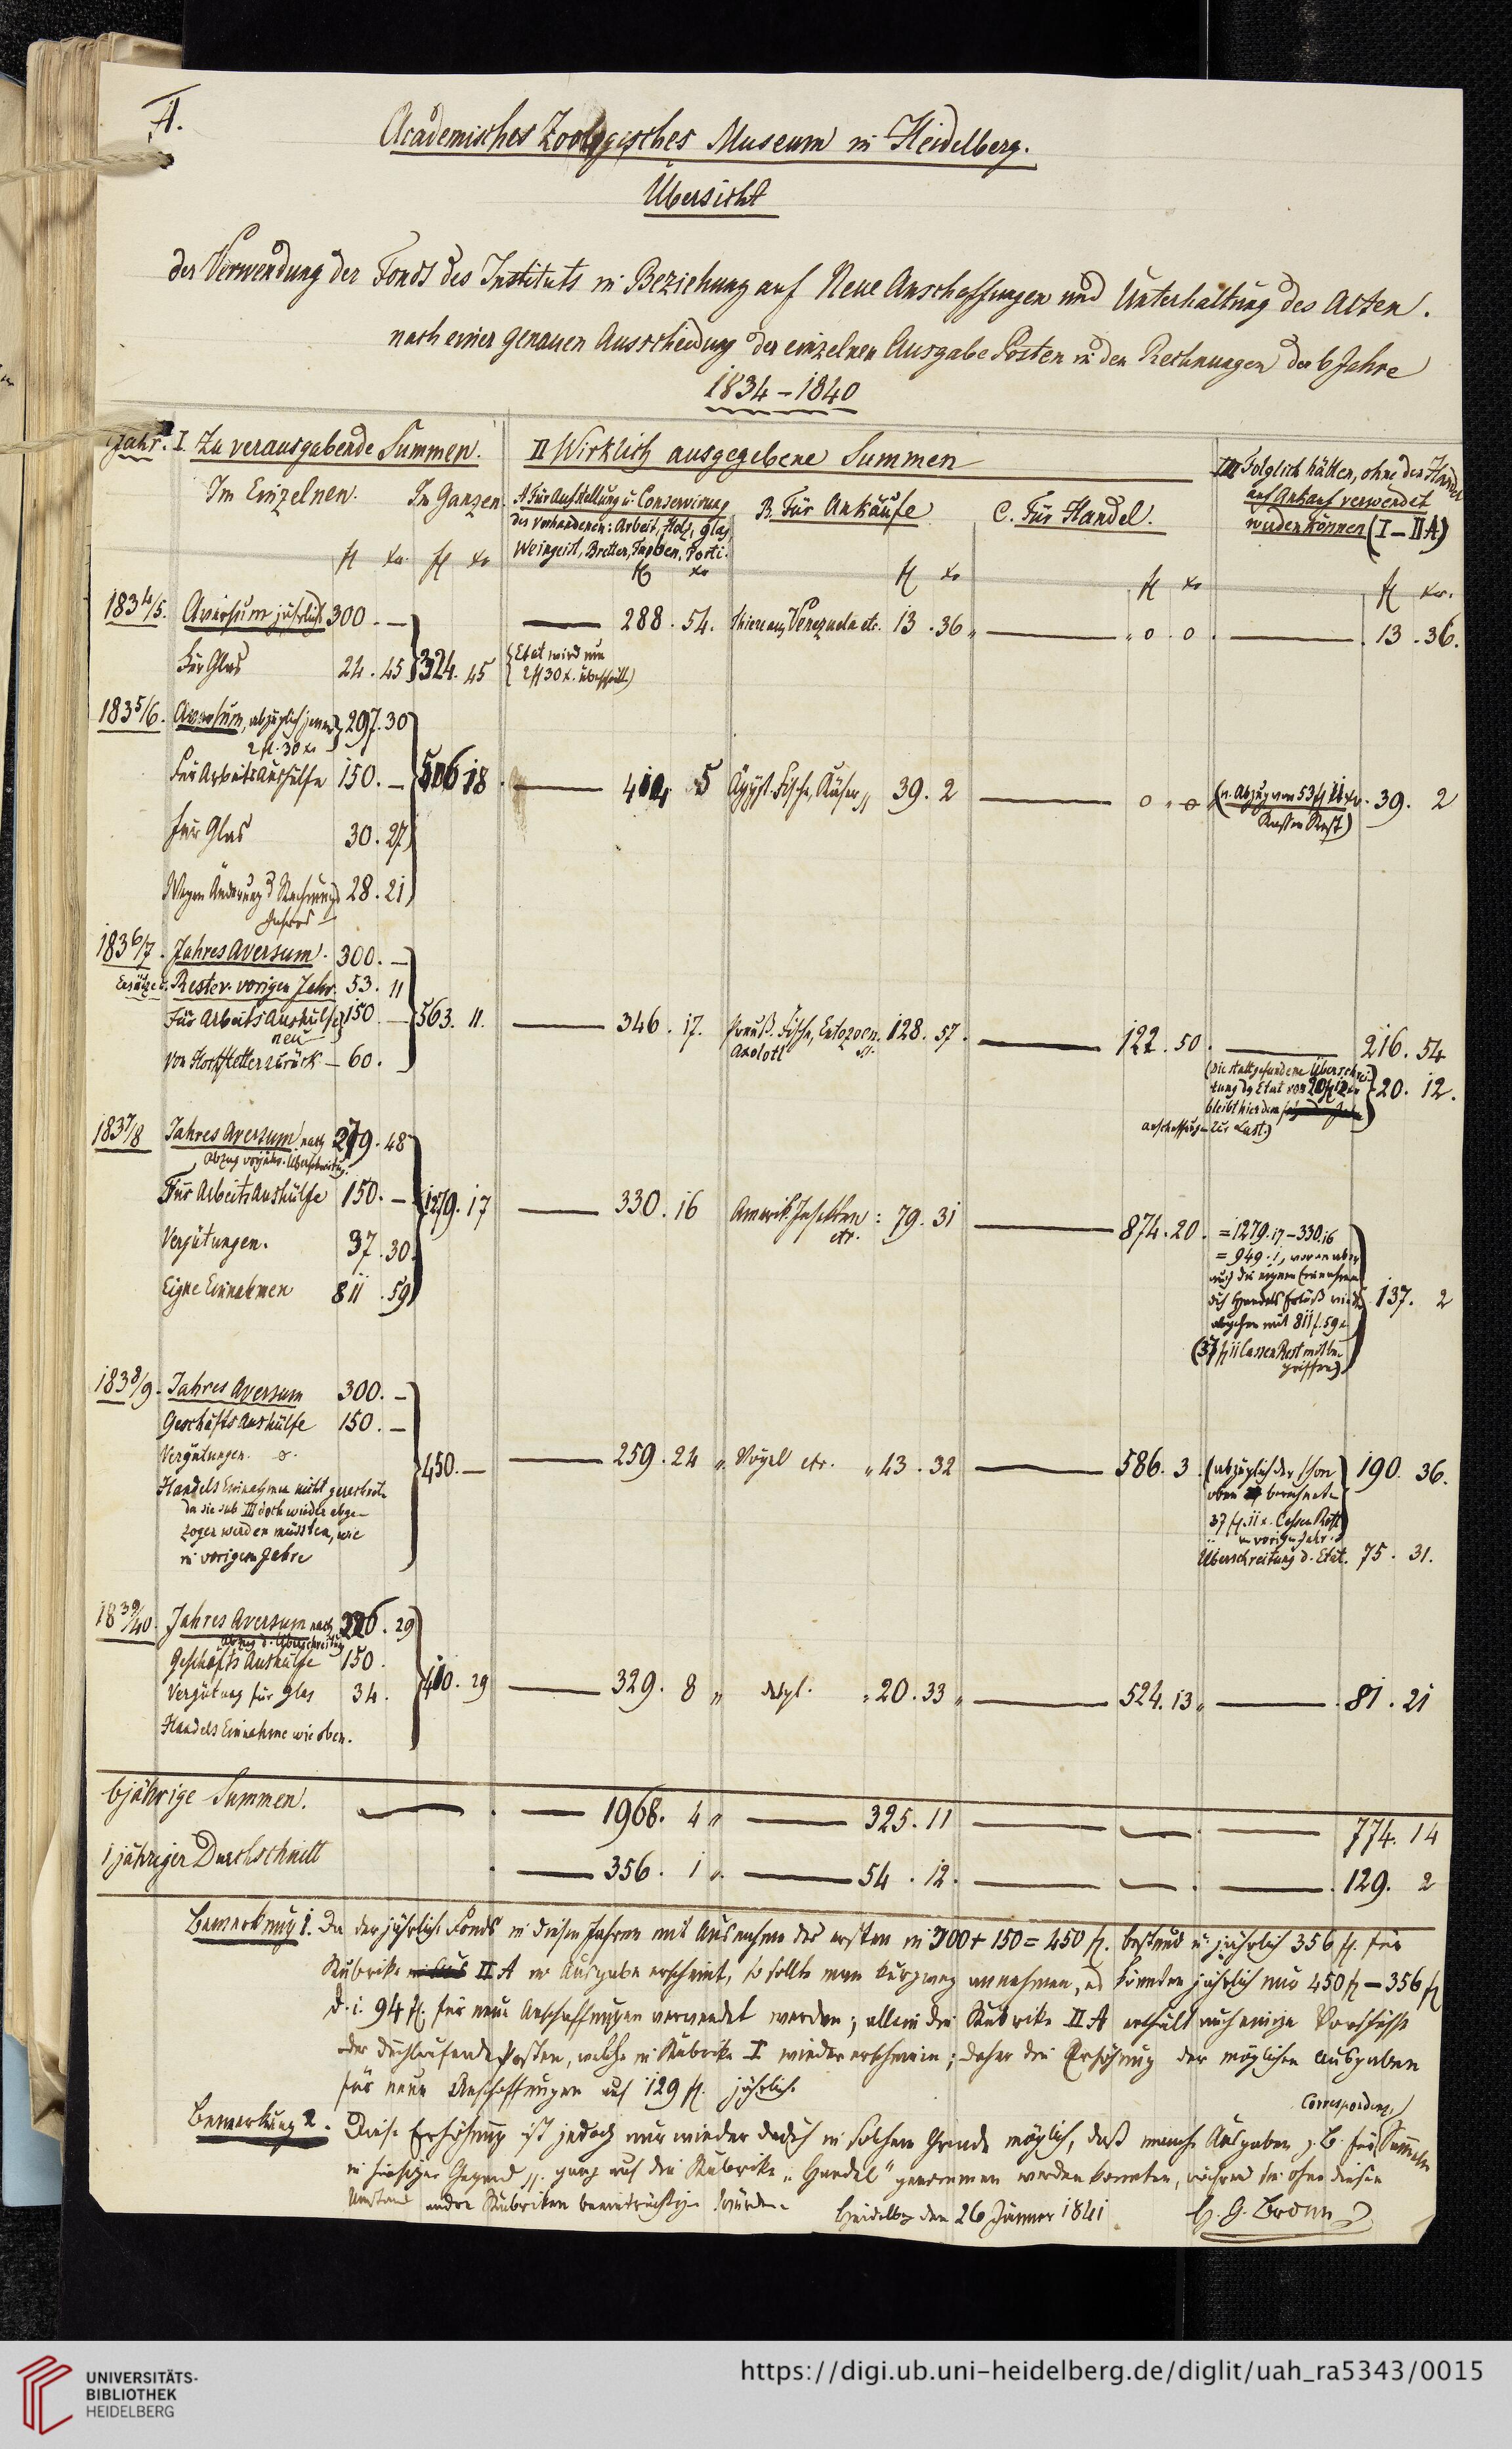 A.
Academisches Zoologisches Museum in Heidelberg.
Übersicht
der Verwendung der Fonds des Instituts in Beziehung auf Neue Anschaffungen und Unterhaltung des Alten.
nach einer genauen Ausscheidung der einzelnen Ausgabe Posten in den Rechnungen der 6 Jahre
1834 – 1840
Jahr. I. Zu verausgabende Summen. II Wirklich ausgegebene Summen III Folglich hätten, ohne den Handel
auf Ankauf verwendet
werden können (I – II A)
Im Einzelnen. Im Ganzen. A Für Aufstellung u. Conservirung B. Für Ankäufe C. Für Handel.
des Vorhandenen: Arbeit, Holz, Glas,
Weingeist, Bretter, Farben, Porti.
fl xr fl xr fl xr fl xr fl xr fl xr.
1834/5. Aversum jährlich 300 . — 288 . 54. Thiere aus Venezuela etc. 13 . 36 „ — „ 0 . 0 . — . 13 . 36.
Für Glas 24 . 45 324. 45 (Etat wird um
2 fl 30 x. überschritt.)
1835/6. Aversum, abzüglich jener 297. 30
2 fl. 30 xr
Für Arbeits Aushülfe 150. — 506 18 . — 414 5 Ägypt. Fische, Käfer 39. 2 — 0 „ 0 (n. Abzug von 53 fl 11 xr 39. 2
Kassen Rest)
Für Glas 30. 27
Wegen Änderung d Rechnungs 28 . 21
Jahres —
1836/7. Jahres Aversum. 300. —
Rest v. vorigen Jahr. 53. 11
Für Arbeits Aushülfe 150 — 563. 11. — 346 . 17. Preuß. Fische, Entozoen. 128. 57. — 122. 50 . — 216. 54
neu
Axolotl
von Hoffstetter zurück — 60.
(Die stattgefundene Überschrei-
tung d. Etat von 20 fl 12 xr 20. 12.
bleibt hier dem
Anschaffungen zur Last.)
1837/8 Jahres Aversum nach 279. 48
Abzug vorjähr. Überschreitung.
Für Arbeits Aushülfe 150. — 1279. 17 — 330. 16 Amerik. Insekten : 79. 31 — 874. 20. = 1279. 17 – 330. 16
etc.
Vergütungen. 37. 30. = 949. 1, wovon aber
auch die eignen Einnahmen
Eigne Einnahmen 811 . 59 durch Handels Erlöß wieder 137. 2
abgehen mit 811 f. 59 x
(37 fl 11 Cassen Rest mitbe-
griffen)
1838/9. Jahres Aversum 300. —
Geschäfts Aushülfe 150. —
Vergütungen. 0. 450. — — 259. 24 „ Vögel etc. „ 43. 32 — 586. 3 . (abzüglich der schon 190. 36.
Handels Einnahmen nicht gerechnet, oben berechneten
da sie sub III doch wieder abge- 37 fl. 11 x. Cassen Rest
zogen werden müssten, wie v. vorigen Jahr.)
in vorigem Jahre Überschreitung d. Etat. 75 . 31.
1839/40. Jahres Aversum nach 226. 29
Abzug d. Überschreitung
Geschäfts Aushülfe 150.
Vergütung für Glas 34. 410. 29 — 329. 8 „ desgl. „ 20. 33 „ — 524. 13 „ — . 81 . 21
Handels Einnahme wie oben.
6jährige Summen. — . — 1968. 4 „ — 325. 11 — — . — 774. 14
1 jähriger Durchschnitt . — 356 . 1 „ — 54 . 12. — — . — . 129. 2
Bemerkung 1. Da der jährliche Fonds in diesen Jahren mit Ausnahme des ersten in 300 + 150 = 450 fl. bestund u. jährlich 356 fl. für
Rubrike II A in Ausgabe erscheint, so sollte man kurzweg annehmen, es könnten jährlich nur 450 fl – 356 fl
d. i. 94 fl. für neue Anschaffungen verwendet werden; allein die Rubrike II A enthält auch einige Vorschüsse
oder durchlaufende Posten, welche in Rubrike I wieder erscheinen; daher die Erhöhung der möglichen Ausgaben
für neue Anschaffungen auf 129 fl. jährlich.
Bemerkung 2. Diese Erhöhung ist jedoch nur wieder dadurch in solchem Grade möglich, daß manche Ausgaben z. B. für Correspondenz, Sammeln
in hiesiger Gegend ganz auf die Rubrike „Handel“ genommen werden konnten, während sie ohne diesen
Umstand andre Rubriken beeinträchtigen würden.
Heidelberg den 26 Jänner 1841 H. G. Bronn
UNIVERSITÄTS-
BIBLIOTHEK
HEIDELBERG
https://digi.ub.uni-heidelberg.de/diglit/uah_ra5343/0015